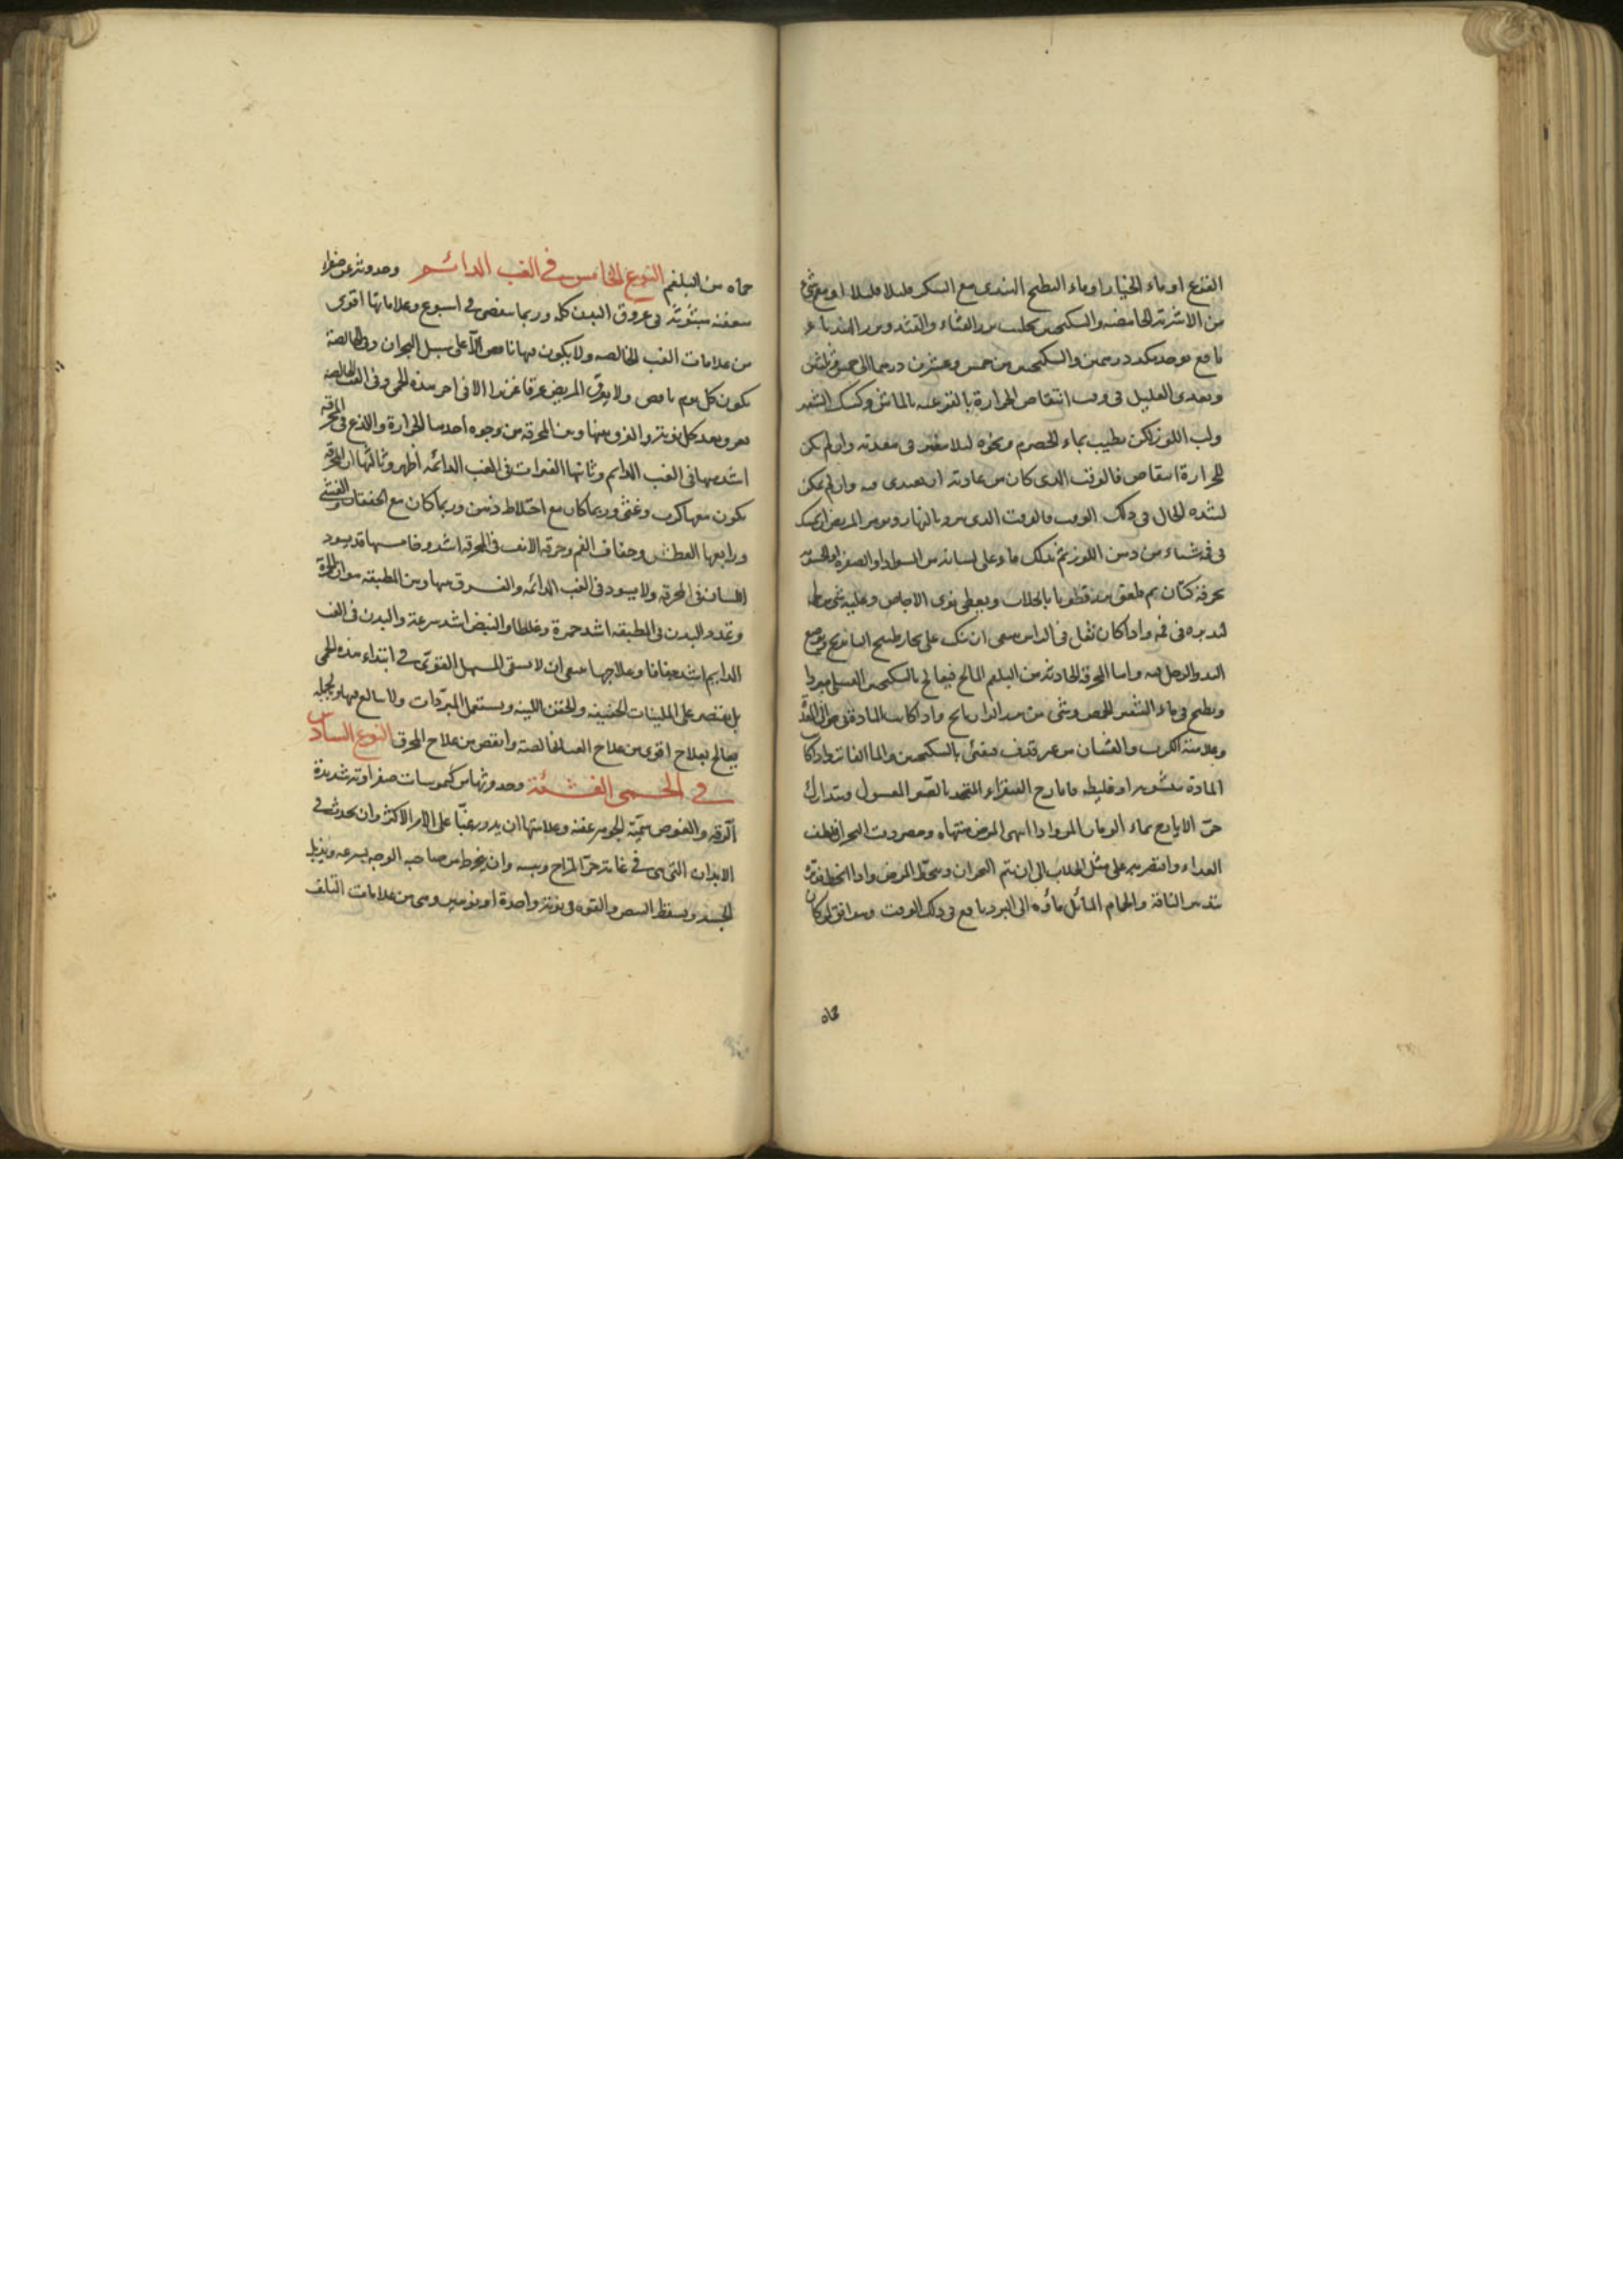 القرع او ماء الخيار او ماء البطيخ الهندى مع السكر قليلا قليلا او مع شئ
من الاشربة الحامضة والسكنجبين بحليب بزر القثاء والقثد وبزر الهندباء
نافع يوخذ درهمين والسكنجبين من خمس وعشرين درهما الى خمس وثلثين
ويغذى العليل فى وقت انتقاص الحرارة بالقرعيه بالماش وكشك الشعير
ولب اللوز لكن يطيب بماء الحصرم ونحوه لئلا يتغير فى معدته وان لم يكن
للحرارة انتقاص فالوقت الذى كان من عادته ان يغتذى فيه وان لم يمكن
لشدة الحال فى ذلك الوقت فالوقت الذى يبرد بالنهار ويومر المريض ان يمسك
فى فيه شيئا من دهن اللوز ثم يدلك ما وعلى لسانه من السواد او الصفرة او الخشونة
بخرقة كتان ثم يلعق بزرقطونا بالجلاب ويعطى نوى الاجاص وعليه شئ من
يديره فى فيه واذا كان ثقل فى الراس ينبغى ان ينكب على بخار طبيخ البابونج ويوضع
اليد والرجل فيه واما المحرقة الحادثه من البلغم المالح فيعالج بالسكنجبين العسلى مبردا
ويطبخ فى ماء الشعير الحمص وشئ من بزر الرازيانج واذا كانت المادة
وعلامته الكرب والغثيان من غير قذف فيقئ بالسكنجبين والماء الفاتر واذا كا
المادة متشربه او غليظه فايارج الصفراء المتخذ بالصبر المغسول ويتدارك
حر الايارج بماء الرمان المر واذا انتهى المرض منتهاه وحضر وقت البحران فلطف
الغداء واقتصر به على مثل الجلاب الى ان يتم البحران وينحط المرض واذا انحط
تدبير الناقة والحمام المائل ماؤه الى البرد نافع فى ذلك الوقت ويوافق لو كان
حماه
حماه من البلغم النوع الخامس فى الغب الدائم وحدوثه عن صفراء
متعفنه مبثوثة فى عروق البدن كله وربما تنقضى فى اسبوع وعلاماتها اقوى
من علامات الغب الخالصه ولا يكون فيها نافض الا على سبيل البحران وفى الخالصة
يكون كل يوم نافض ولا يعرق المريض عرقا غزيرا الا فى اخر هذه الحمى وفى الغب الخالصه
يعرق بعد كل نوبة والفرق بينها وبين المحرقة من وجوه أحدها الحرارة واللذع فى المحرقه
اشد منها فى الغب الدايم وثانيها الفترات فى الغب الدائمه أظهر وثالثها ان المحرقه
يكون معها كرب وغشى وربما كان مع اختلاط ذهن وربما كان مع الخفقان والغشى
ورابعها العطش وجفاف الفم وحرقة الانف فى المحرقه اشد وخامسها قد يسود
اللسان فى المحرقه ولا يسود فى الغب الدائمه والفرق بينها وبين المطبقه هو ان الحمرة
وتمدد البدن فى المطبقه اشد حمرة وغلظا والنبض اشد سرعة والبدن فى الغب
الدايم اشد جفافا وعلاجها ينبغى ان لا يسقى المسهل القوى فى ابتداء هذه الحمى
بل يقتصر على الملينات الخفيفه والحقن اللينه ويستعمل المبردات ولا يبالغ فيها وبالجمله
يعالج بعلاج اقوى من علاج الغب الخالصة وانقص من علاج المحرق النوع السادس
فى الحمى الغشئة وحدوثها من كيموسات صفراوية شديدة
الرقه والغوص سمية الجوهر عفنه وعلامتها ان يدور غبا على الامر الاكثر وان يحدث فى
الابدان التى هى فى غاية حر المزاج ويبسه وان ينخرط من صاحبه الوجه بسرعه ويذبل
الجسد ويسقط النبض والقوه فى نوبة واحدة او نوبتين وهى من علامات التلف